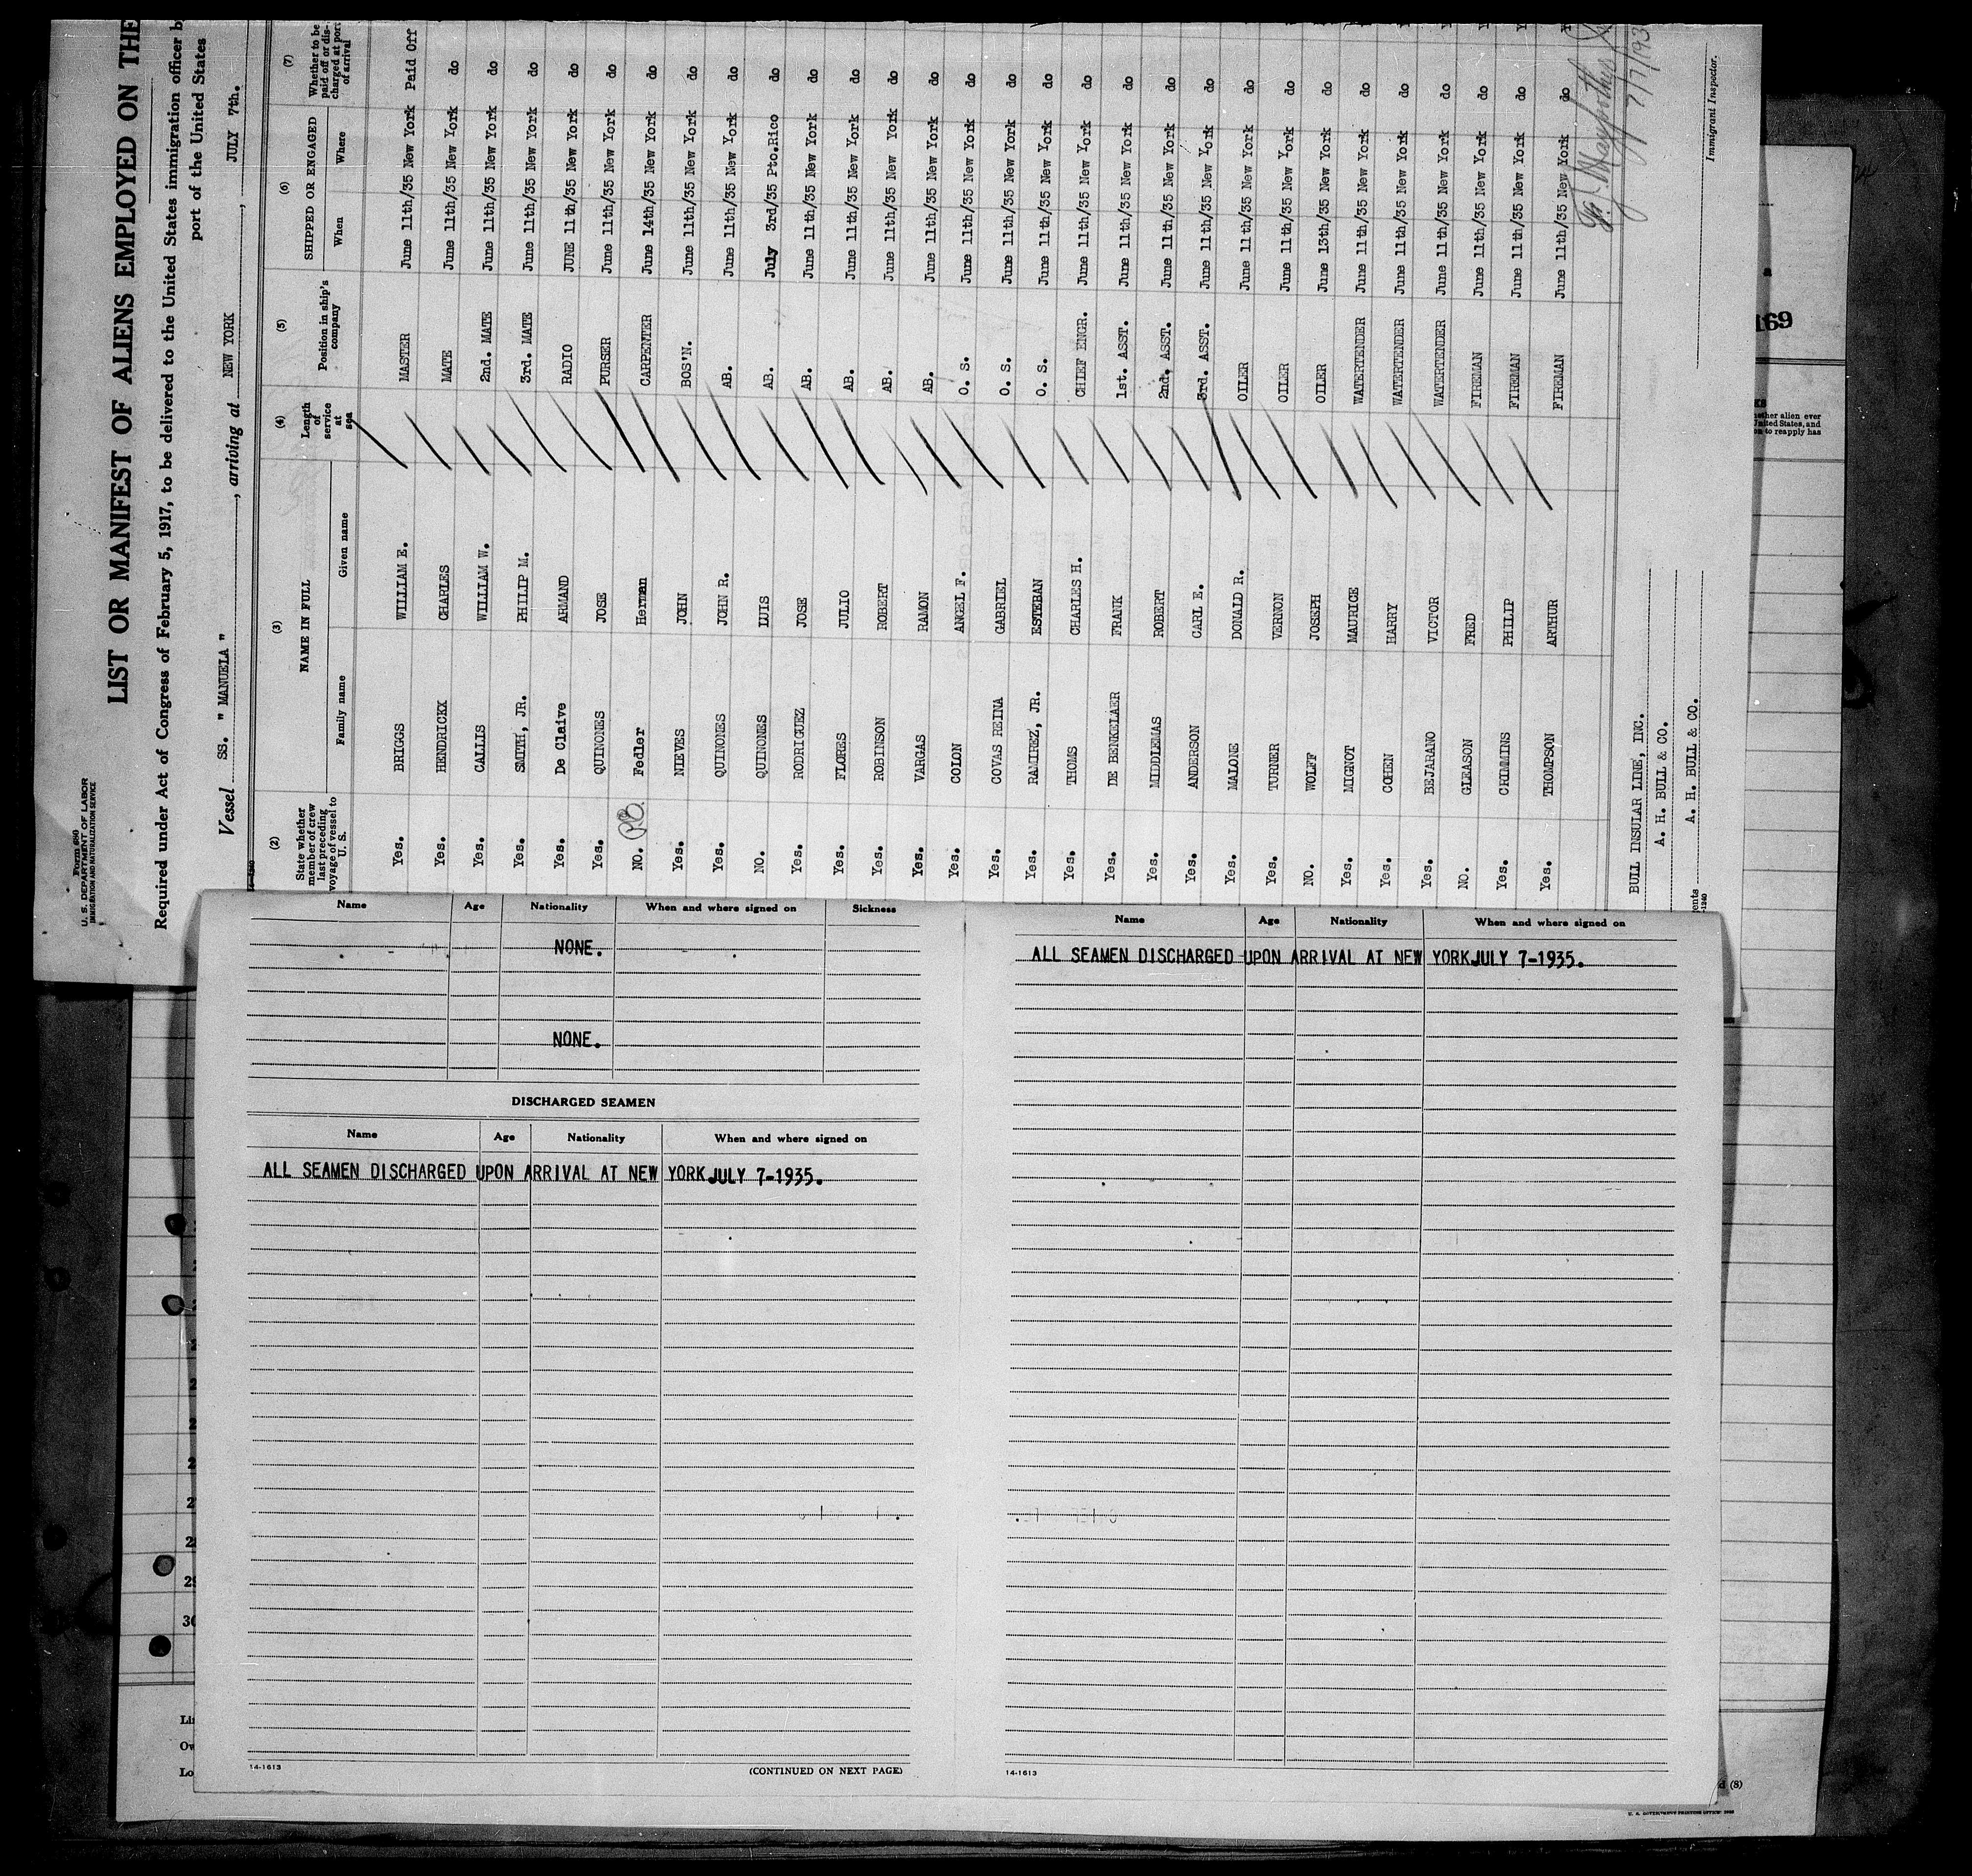 Form 680
U. S. DEPARTMENT OF LABOR
IMMIGRATION AND NATURALIZATION SERVICE
LIST OR MANIFEST OF ALIENS EMPLOYED ON THE
Required under Act of Congress of February 5, 1917, to be delivered to the United States immigration officer b
port of the United States
Vessel SS. " MANUELA ", arriving at NEW YORK, JULY 7th.
(2) (3) (4) (5) (6) (7)
State whether member of crew last preceding voyage of vessel to U. S. NAME IN FULL Length of service at sea Position in ship's company SHIPPED OR ENGAGED Whether to be paid off or discharged at port of arrival
Family name Given name When Where
Yes. BRIGGS WILLIAM E. MASTER June 11th/35 New York Paid Off
Yes. HENDRICKX CHARLES MATE June 11th/35 New York do
Yes. CALLIS WILLIAM W. 2nd. MATE June 11th/35 New York do
Yes. SMITH, JR. PHILIP M. 3rd. MATE June 11th/35 New York do
Yes. De Claive ARMAND RADIO JUNE 11th/35 New York do
Yes. QUINONES JOSE PURSER June 11th/35 New York do
NO. Fedler Herman CARPENTER June 14th/35 New York do
Yes. NIEVES JOHN BOS'N. June 11th/35 New York do
Yes. QUINONES JOHN R. AB. June 11th/35 New York do
NO. QUINONES LUIS AB. July 3rd/35 Pto.Rico do
Yes. RODRIGUEZ JOSE AB. June 11th/35 New York do
Yes. FLORES JULIO AB. June 11th/35 New York do
Yes. ROBINSON ROBERT AB. June 11th/35 New York do
Yes. VARGAS RAMON AB. June 11th/35 New York do
Yes. COLON ANGEL F. O. S. June 11th/35 New York do
Yes. COVAS REINA GABRIEL O. S. June 11th/35 New York do
Yes. RAMIREZ, JR. ESTEBAN O. S. June 11th/35 New York do
Yes. THOMS CHARLES H. CHIEF ENGR. June 11th/35 New York do
Yes. DE BENKELAER FRANK 1st. ASST. June 11th/35 New York do
Yes. MIDDLEMAS ROBERT 2nd. ASST. June 11th/35 New York do
Yes. ANDERSON CARL E. 3rd. ASST. June 11th/35 New York do
Yes. MALONE DONALD R. OILER June 11th/35 New York do
Yes. TURNER VERNON OILER June 11th/35 New York do
NO. WOLFF JOSEPH OILER June 13th/35 New York do
Yes. MIGNOT MAURICE WATERTENDER June 11th/35 New York do
Yes. COHEN HARRY WATERTENDER June 11th/35 New York do
Yes. BEJARANO VICTOR WATERTENDER June 11th/35 New York do
NO. GLEASON FRED FIREMAN June 11th/35 New York do
Yes. CRIMMINS PHILIP FIREMAN June 11th/35 New York do
Yes. THOMPSON ARTHUR FIREMAN June 11th/35 New York do
7/7/193
BULL INSULAR LINE, INC.
A. H. BULL & CO.
ents A. H. BULL & CO.
Immigrant Inspector.
169
hether alien ever
United States, and
on to reapply has
Name Age Nationality When and where signed on Sickness
NONE.
NONE.
DISCHARGED SEAMEN
Name Age Nationality When and where signed on
ALL SEAMEN DISCHARGED UPON ARRIVAL AT NEW YORK JULY 7-1935.
14-1613 (CONTINUED ON NEXT PAGE)
Name Age Nationality When and where signed on
ALL SEAMEN DISCHARGED UPON ARRIVAL AT NEW YORK JULY 7-1935.
14-1613
30
Ow
Lo
d (8)
U. S. GOVERNMENT PRINTING OFFICE